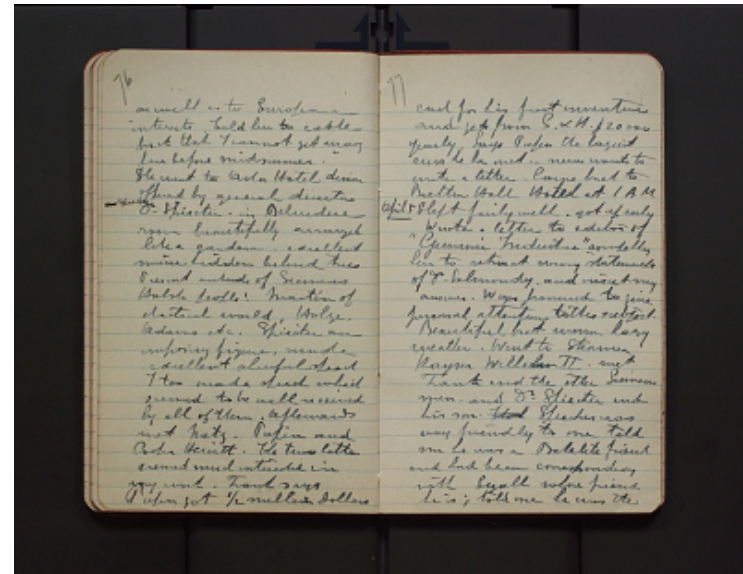 76
as well as to European
interests told him to cable
but that I cannot get away
from before midsummer.
He went to Astor Hotel dinner
offered by general director
Dr. Spiecker - in Belvedere
room beautifully arranged
like a garden - excellent
music hidden behind trees
Present outside of Siemens
Halske people: Martin of
electrical world, Holze,
Adams etc. Spiecker an
imposing figure, made
excellent cheerful speech
I too made speech which
seemed to be well received
by all of them. Afterwards
met Katz. Pupin and
Cooper Hewitt. The two latter
seemed much interested in
my work. Frank says
Pupin got 1/2 million Dollars
77
cash for his first inventions
and gets from S. & H. $20000
yearly. Says Pupin the
he met - never wants to
write a letter. Came back to
Hall Hotel at 1 A.M.
April 8 Slept fairly well. got up early
Wrote a letter to editor of
"Chemische Industrie" and
him to retract wrong statements
of Dr. and insert my
answer. promised to give
personal attention to this subject.
Beautiful but warm hazy
weather. Went to Steamer
Kayser Wilhelm II. met
Frank and the other Siemens
men. and Dr. Spiecker and
his son. Spiecker was
very friendly to me told
me he was a Bakelite friend
and had been corresponding
with whose friend
he is; told me he was the